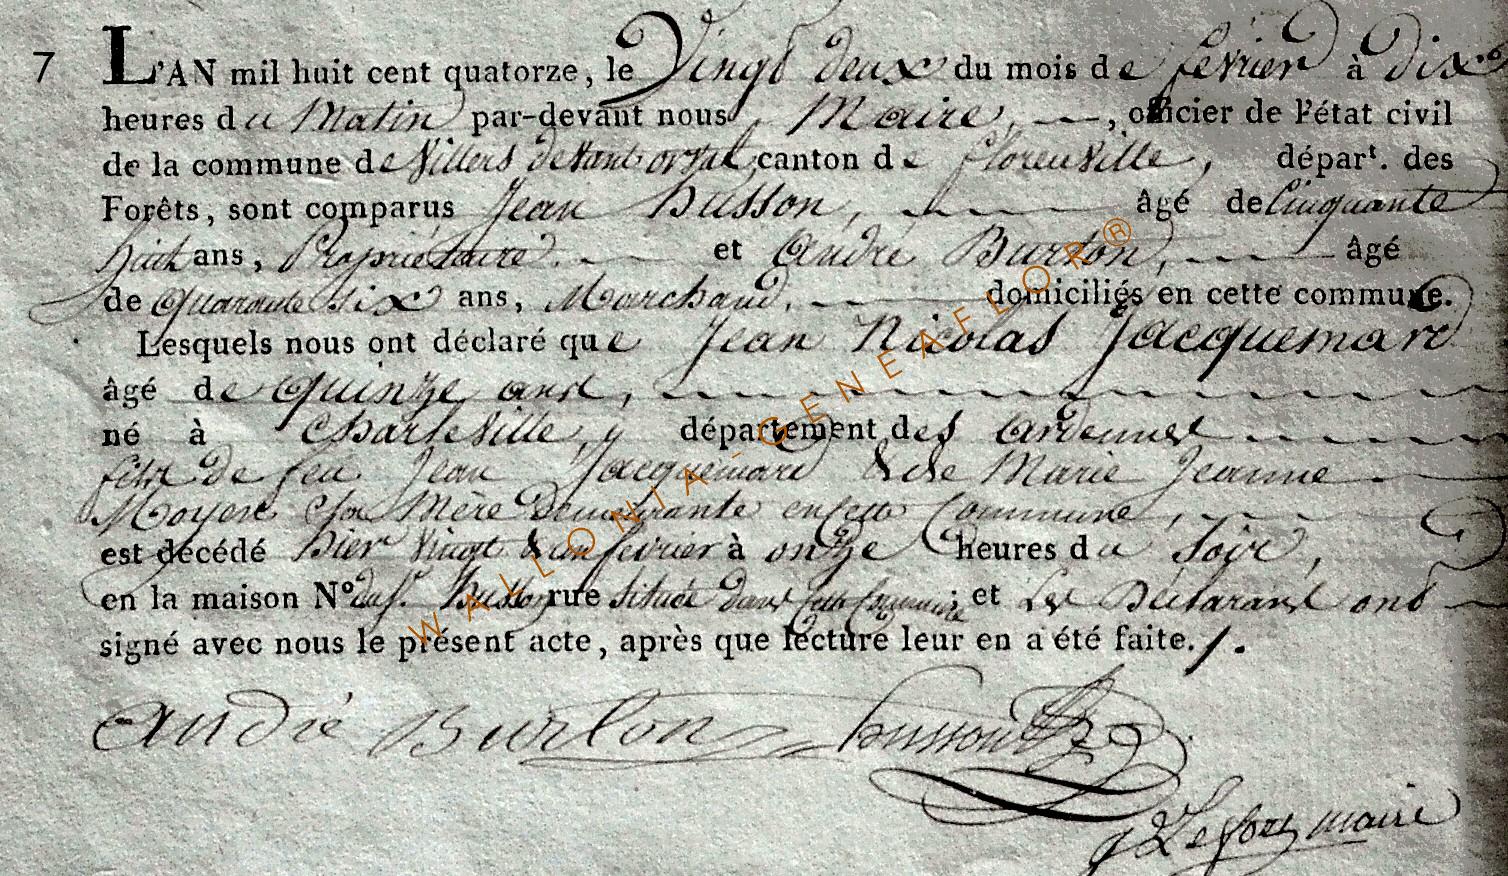 7 L'AN mil huit cent quatorze, le Vingt deux du mois de fevrier à dix
heures du Matin par-devant nous Maire, officier de l'état civil
de la commune de Villers devant orval, canton de florenville, dépar.t des
Forêts, sont comparus Jean husson, âgé de Cinquante
huit ans, Proprietaire. et andré Burton, âgé
de quarante six ans, Marchand, domiciliés en cette commune.
Lesquels nous ont déclaré que Jean Nicolas Jacquemard
âgé de quinze ans,
né à Charleville, département des ardennes
fils de feu Jean Jacquemard & de Marie Jeanne
Moyen Sa Mère Demeurante en cette Commune,
est décédé hier vingt & un fevrier à onze heures du Soir,
en la maison N.o du S.r husson rue située dans cette Commune; et les Déclarans ont
signé avec nous le présent acte, après que lecture leur en a été faite./.
andré Burton husson
maire
WALLONIA-GENEAFLOR®